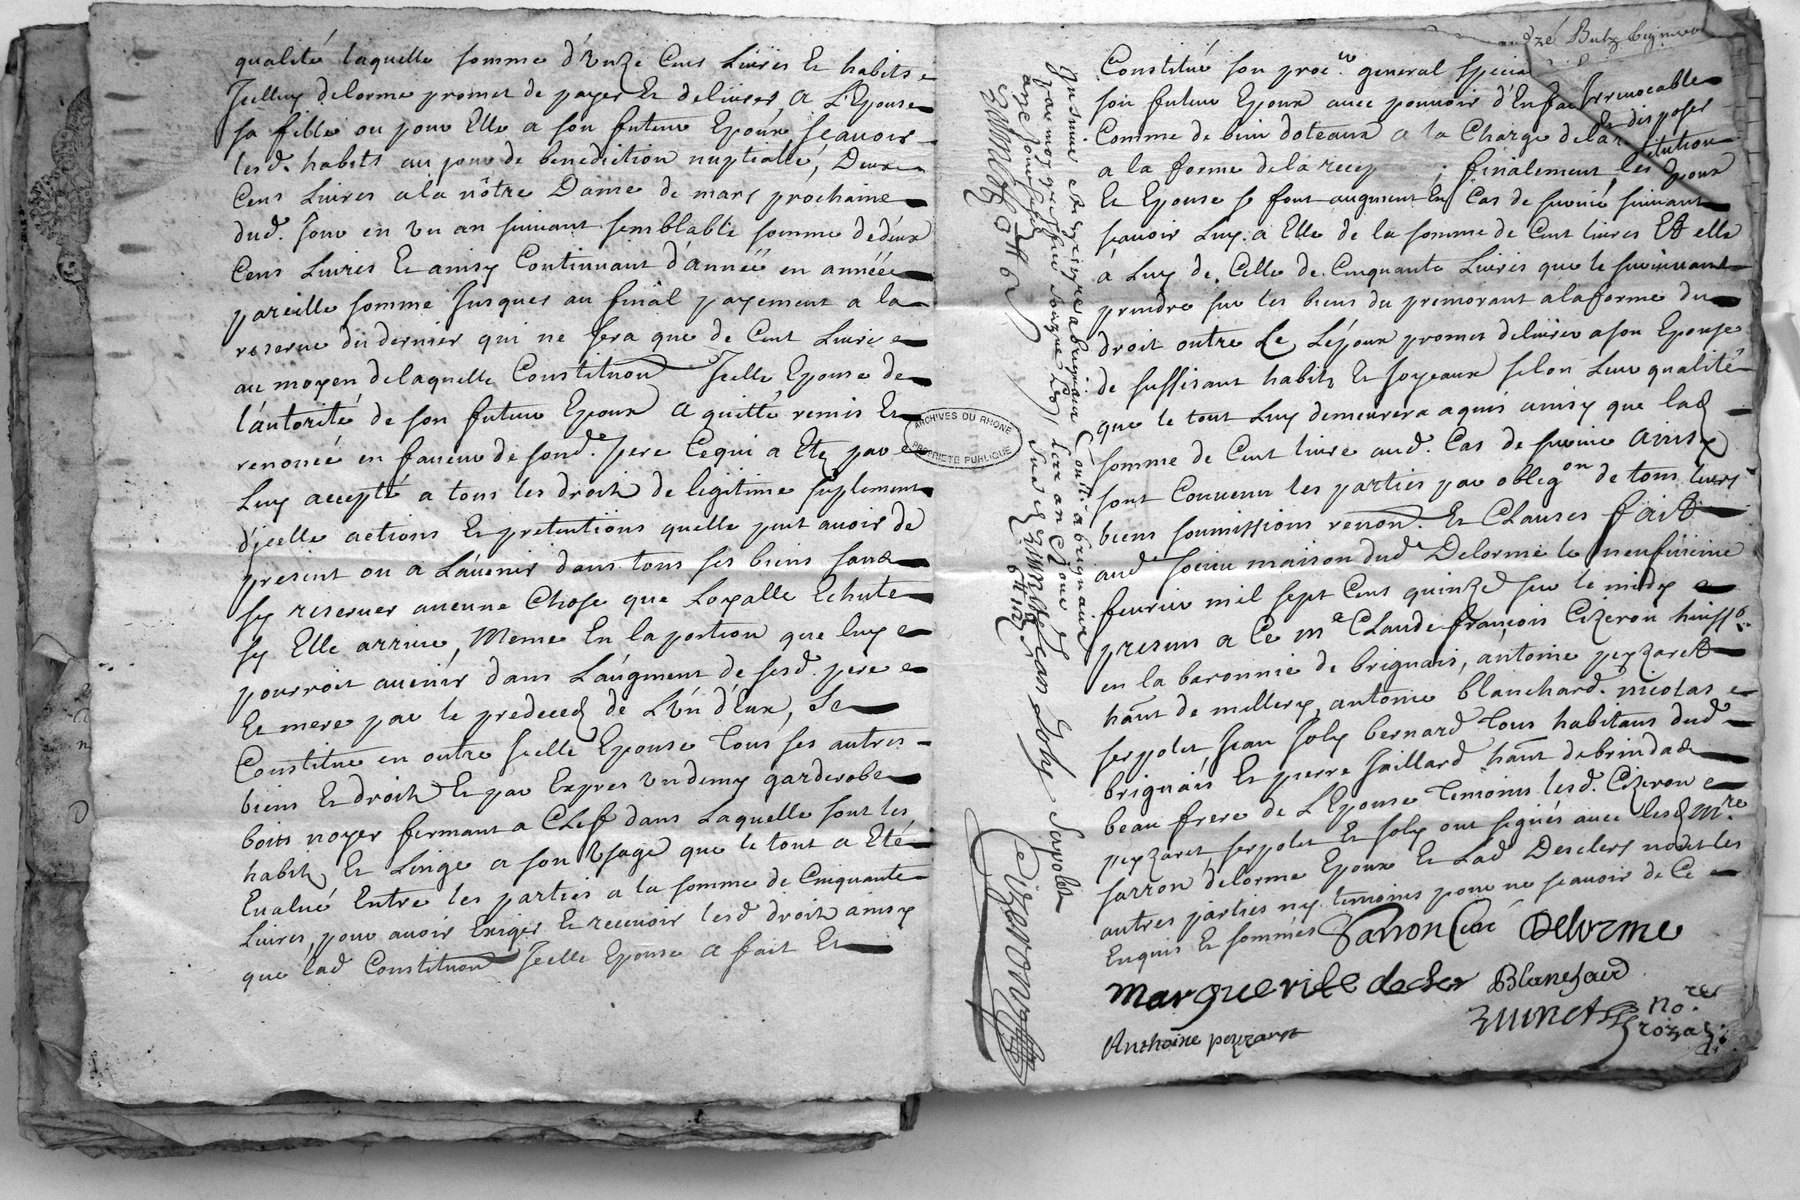 qualité laquelle somme d'Unze Cens Livres Et habits
Icelluy delorme promet de payer Et delivrer A L'Epouse
sa fille ou pour Elle a son futeur Epoux sçavoir
lesd. habits au jour de benediction nuptialle, Deux
Cens Livres a la nôtre Dame de mars prochaine
dud. jour en Un an suivant semblable somme dedeux
Cens Livres Et ainsy Continuant d'année en année
pareille somme Jusques au final payement a la
reserve du dernier qui ne sera que de Cent Livres
au moyen delaquelle Constitution Icelle Epouse de
l'autorité de son futeur Epoux A quitté remis Et
renoncé en faveur de sond. pere Cequi a Eté par
Luy accepté a tous les droits de legitime suplement
d'jcelle actions Et pretentions quelle peut avoir de
present ou a L'avenir dans tous ses biens sans
sy reserver aucune Chose que Loyalle Echute
sy Elle arrive, Meme En la portion que luy
pourroit avenir dans L'augment de sesd. pere
Et mere par le predeced de L'Un d'Eux, Se
Constitue en outre Jcelle Epouse Tous ses autres
biens Et droits Et par Expres Un demy garderobe
bois noyer fermant a CLef dans Laquelle sont les
habits Et Linge a son Usage que le tout a Eté
Evalué Entre les parties a la somme de Cinquante
Livres, pour avoir Exiger Et recevoir lesd droits ainsy
que lad Constitution Icelle Epouse A fait Et
Constitué son procur general special
son futeur Epoux avec pouvoir d'En faire Irrevocable
disposer
Comme de bien doteaux a la Charge dela restitution
a la forme de la recep ; finalement les Epoux
Et Epouse se font augment En Cas de survie suivant
sçavoir Luy a Elle de la somme de Cent livres Et elle
à Luy de Celle de Cinquante Livres que le survivant
prendra sur les biens du premorant a la forme du
droit outre Ce, L'époux promet delivrer a son Epouse
de suffisant habits Et Joyeaux selon Leur qualité
que le tout Luy demeurera aquis ainsy que lad
somme de Cent livre aud. Cas de survie Ainsy
sont Convenu les parties par obligon de tous leurs
biens soumissions renon. Et Clauses fait
aud maison dud Delorme le neufvieme
fevrier mil sept Cens quinze sur le midy
presens a Ce Me Claude françois Cizeron huissr
en la baronnie de brignais, antoine peyzaret
hant de millery, antoine blanchard. nicolas
serpolet Jean Joly bernard Tous habitans dud
brignais Et pierre Gaillard hant de brindas
beau frere de L'Epouse Temoins lesd. Cizeron
peyzaret, serpolet Et Joly ont signés avec lesd Mre
sarron delorme Epoux Et Lad Desclers non les
autres parties ny temoins pour ne scavoir de Ce
Enquis Et sommés Sarron Curé Delorme
Marguerite decler Blanchard
Anthoine peyzaret
No.re
rozal
Jean Joly Serpolet
Cizeron
ARCHIVES DU RHONE
PROPRIETE PUBLIQUE